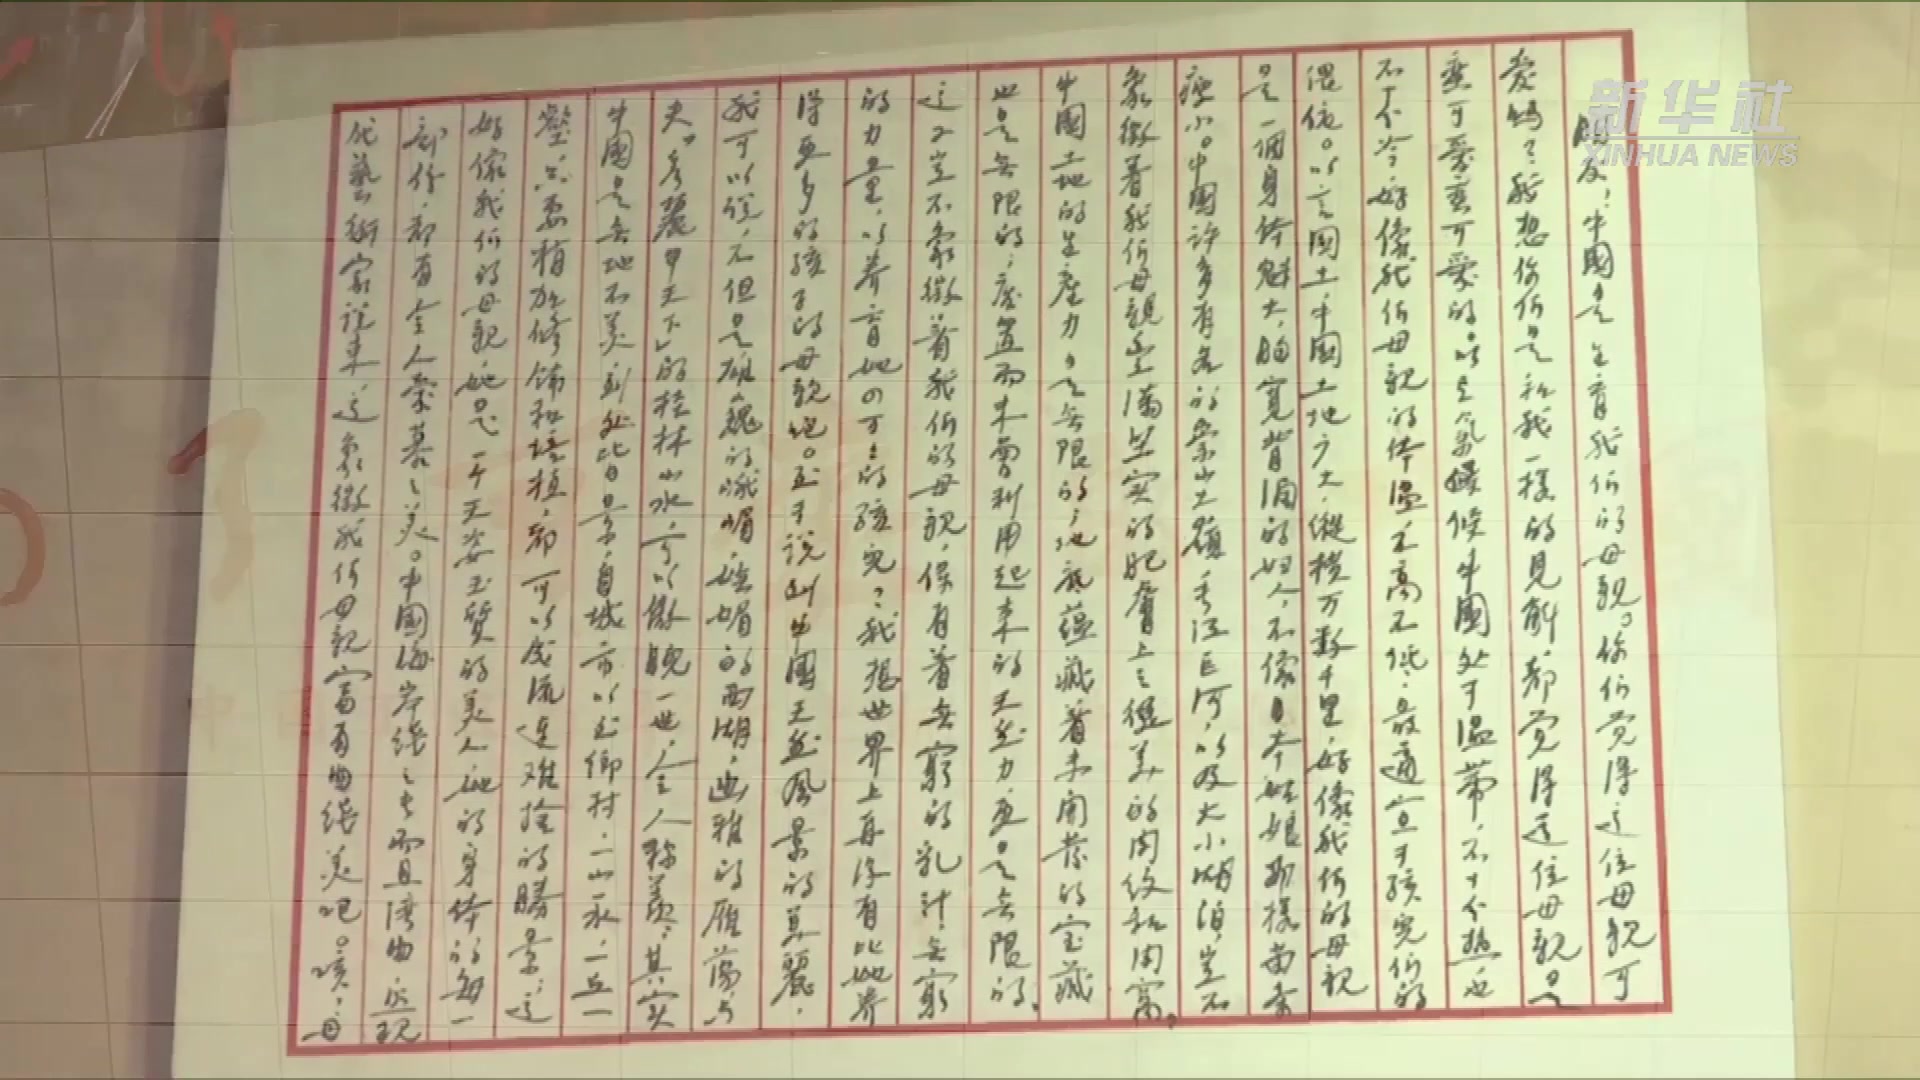 新华社
XINHUA NEWS
朋友！中國是生育我们的母親。你们觉得这位母親可
爱吗？我想你们是和我一樣的見解，都觉得这位母親是
蛮可爱蛮可爱的。以言氣候，中國处于温帶，不十分热，也
不十分冷，好像我们母親的体温，不高不低，最適宜于孩兒们的
偎依。以言國土，中國土地广大，縱横万数千里，好像我们的母親
是一個身体魁大，胸寬背濶的妇人，不像日本姑娘那樣苗条
瘦小。中國许多有名的崇山大嶺，長江巨河，以及大小湖泊，豈不
象徵着我们母親丰满坚实的肥膚上之健美的肉纹和肉窩？
中國土地的生産力是无限的；地底蕴藏着未開發的宝藏
也是无限的；废置而未曾利用起来的天然力，更是无限的，
这又豈不象徵着我们的母親，保有着无窮的乳汁，无窮
的力量，以养育她四万万的孩兒？我想世界上再没有比她养
得更多的孩子的母親吧。至于說到中國天然風景的美麗，
我可以说，不但是雄巍的峨嵋，嫵媚的西湖，幽雅的雁荡，与
夫“秀麗甲天下”的桂林山水，可以傲睨一世，令人称羡；其实
中國是无地不美，到处皆景，自城市以至乡村，一山一水，一丘一
壑，只要稍加修饰和培植，都可以成流連难捨的勝景；这
好像我们的母親，她是一个天姿玉質的美人，她的身体的每一
部份，都有令人爱慕之美。中國海岸线之長而且湾曲，照现
代藝術家说来，这象徵我们母親富有曲线美吧。咳！母